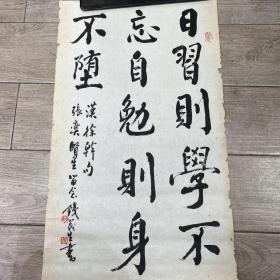 日習則學不
忘自勉則身
不墮
漢徐幹句
張奕賢生留念錢茂生書